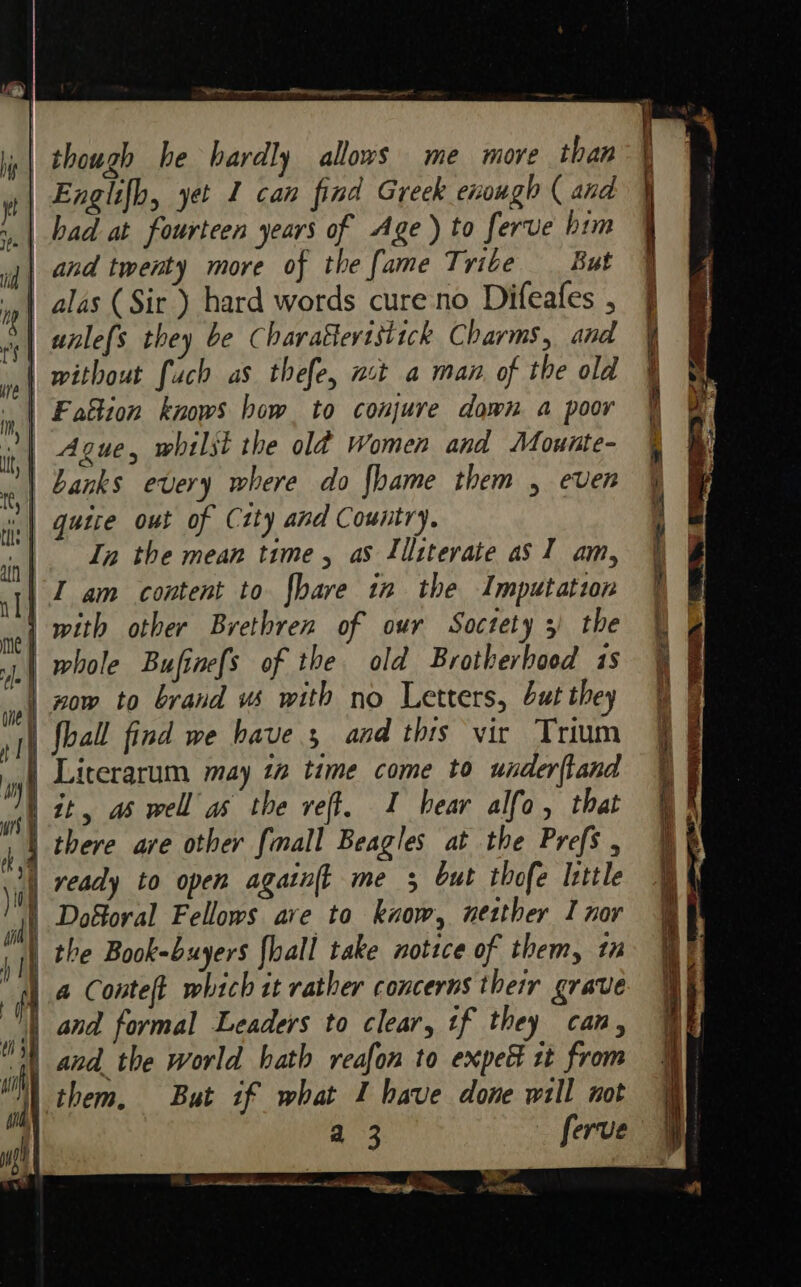 though he hardly allows me more than
Engliſh, yet I can find Greek enough ( and
had at fourteen years of Age ) to ſerve him
and twenty more of the ſame Tribe But
alas (Sir ) hard words cure no Diſeaſes ,
unleſs they be Characteristick Charms, and
without ſuch as theſe, not a man of the old
Faction knows how to conjure down a poor
Ague, whilst the old Women and Mounte-
banks every where do ſhame them , even
quite out of City and Country.
In the mean time , as Illiterate as I am,
I am content to ſhare in the Imputation
with other Brethren of our Society ; the
whole Buſineſs of the old Brotherhood is
now to brand us with no Letters, but they
ſhall find we have ; and this vir Trium
Literarum may in time come to underſtand
it, as well as the reſt. I hear alſo, that
there are other ſmall Beagles at the Preſs ,
ready to open againſt me ; but thoſe little
Doctoral Fellows are to know, neither I nor
the Book-buyers ſhall take notice of them, in
a Conteſt which it rather concerns their grave
and formal Leaders to clear, if they can,
and the world hath reaſon to expect it from
them. But if what I have done will not
a 3 ſerve